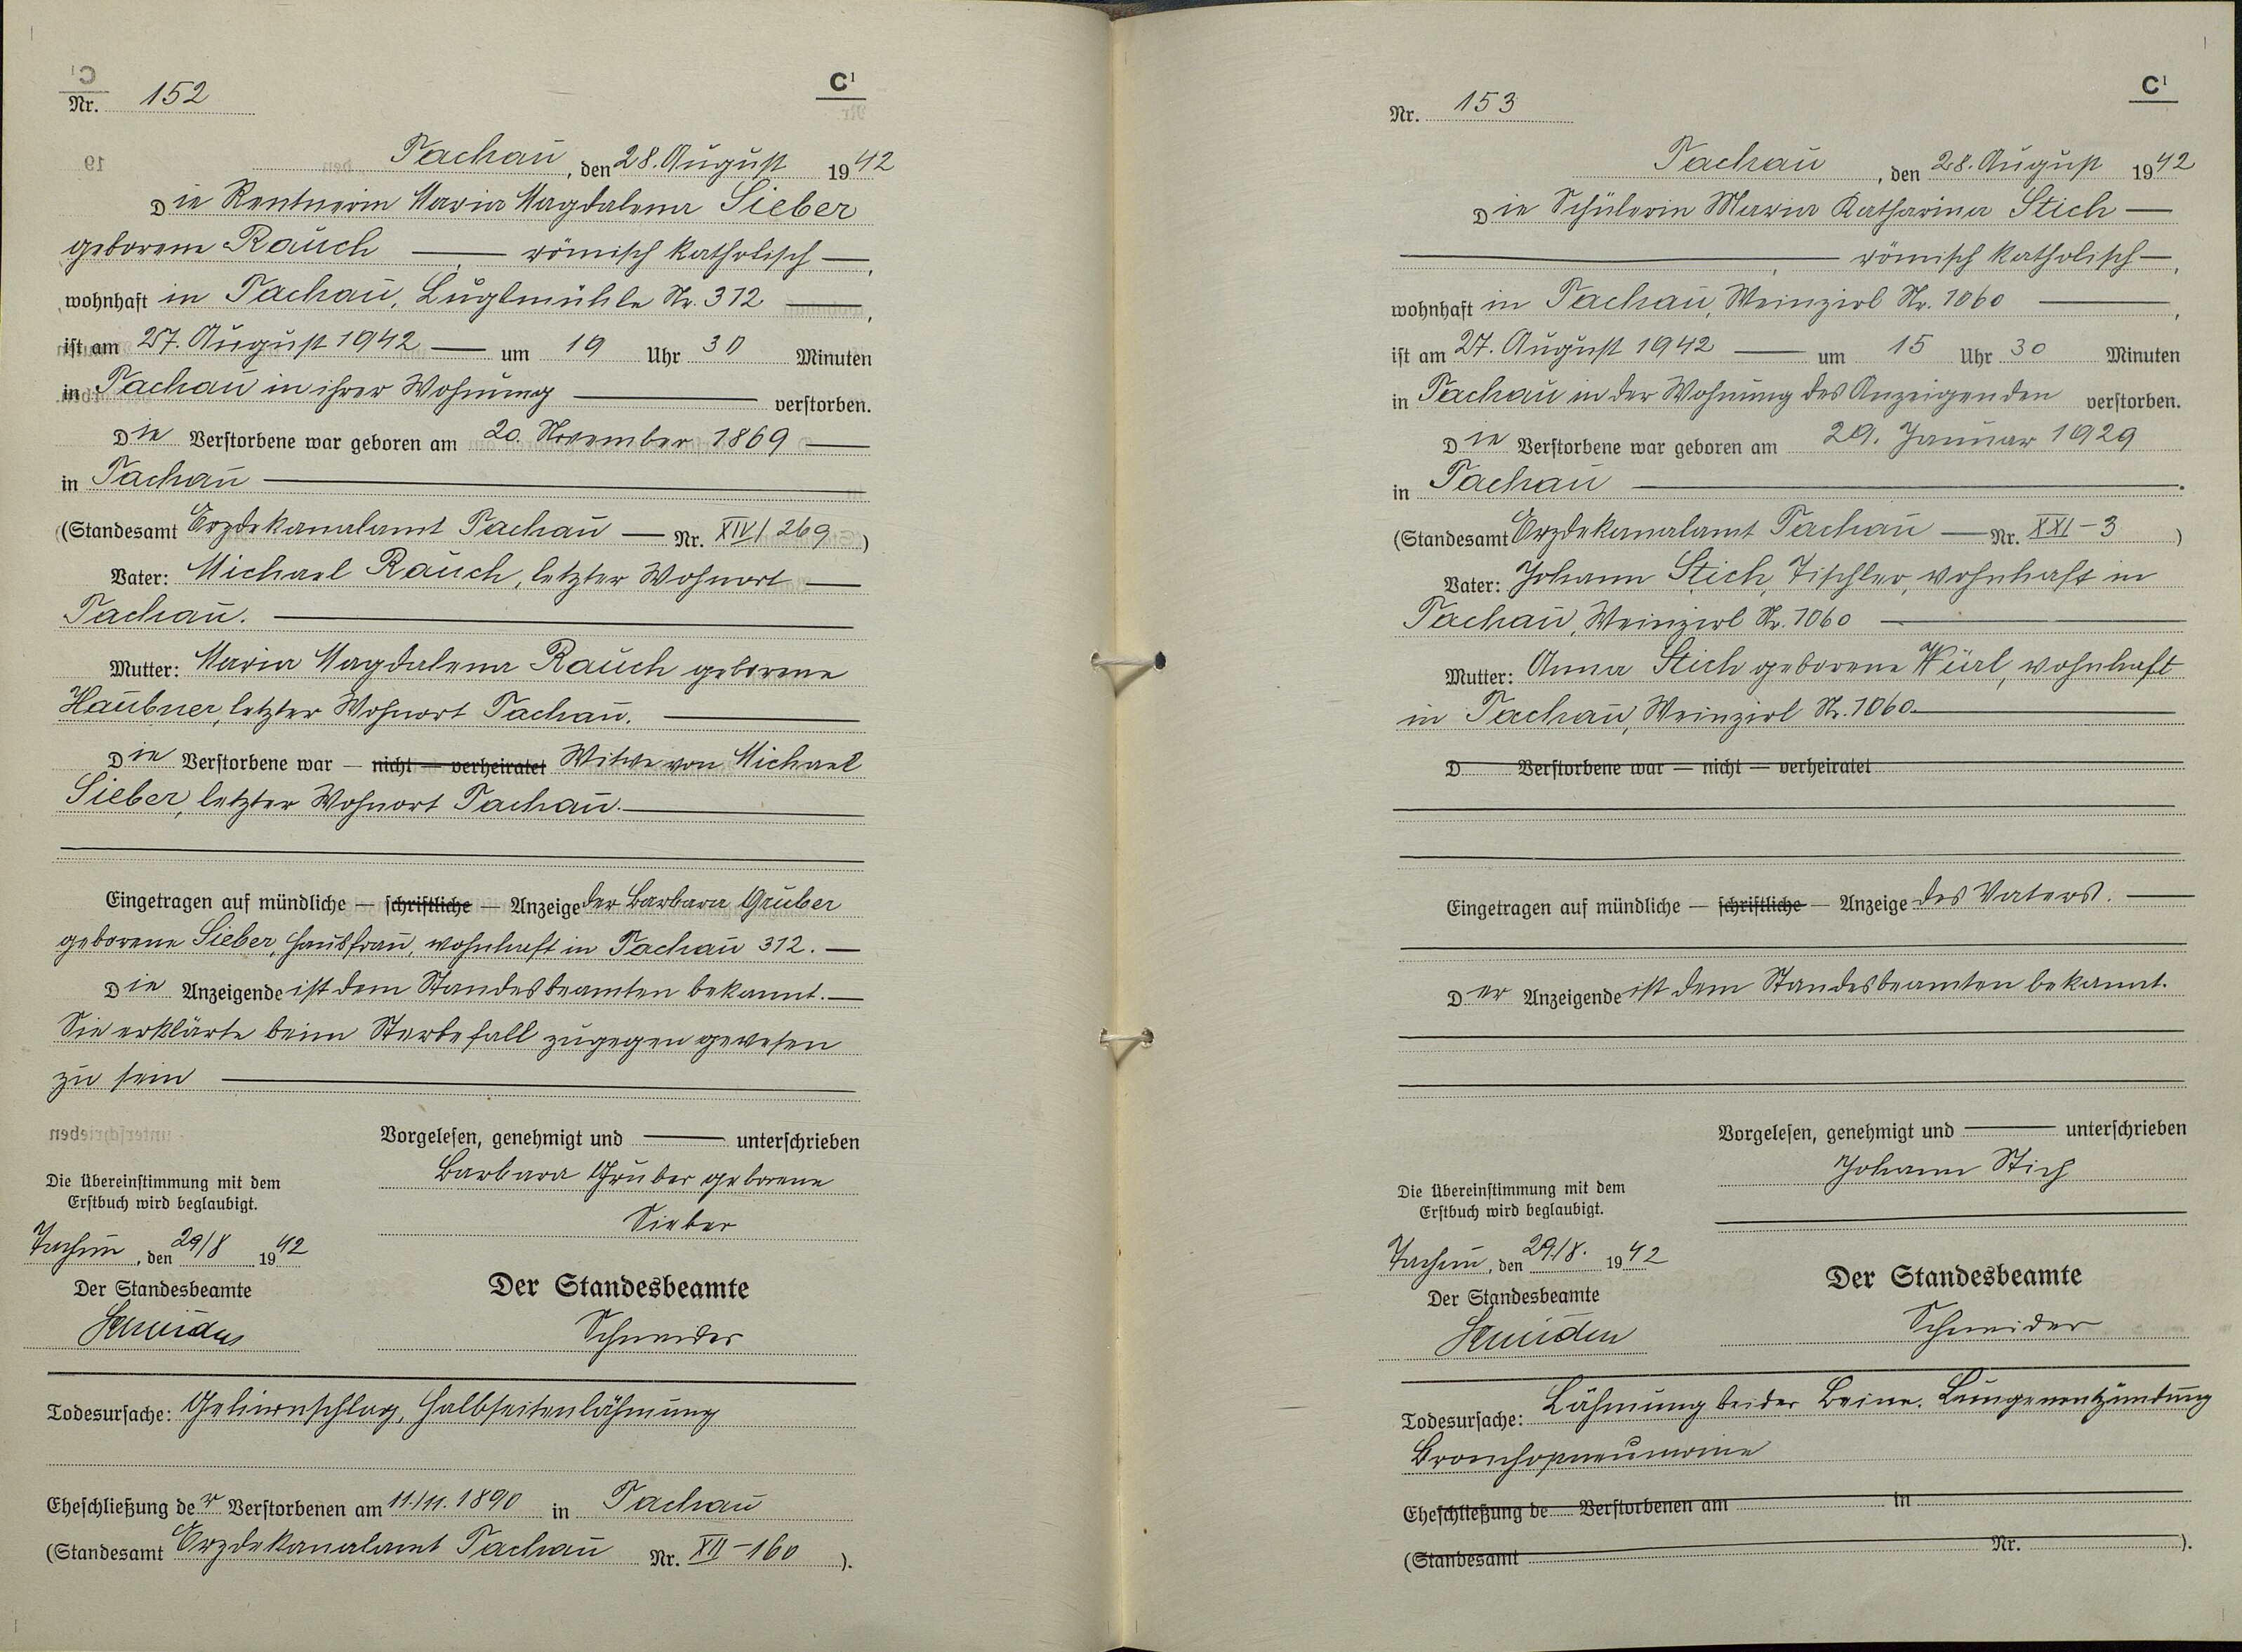 C¹
Nr. 152
Tachau, den 28. August 1942
Die Rentnerin Maria Magdalena Sieber
geborene Rauch — römisch katholisch —,
wohnhaft in Tachau, Luglmühle Nr. 312 —,
ist am 27. August 1942 — um 19 Uhr 30 Minuten
in Tachau in ihrer Wohnung — verstorben.
Die Verstorbene war geboren am 20. November 1869 —
in Tachau —
(Standesamt Erzdekanalamt Tachau — Nr. XIV/269)
Vater: Michael Rauch, letzter Wohnort —
Tachau. —
Mutter: Maria Magdalena Rauch geborene
Haubner, letzter Wohnort Tachau. —
Die Verstorbene war — nicht — verheiratet Witwe von Michael
Sieber, letzter Wohnort Tachau. —
Eingetragen auf mündliche — schriftliche — Anzeige der Barbara Gruber
geborene Sieber, Hausfrau, wohnhaft in Tachau 312. —
Die Anzeigende ist dem Standesbeamten bekannt. —
Sie erklärte beim Sterbefall zugegen gewesen
zu sein —
Vorgelesen, genehmigt und — unterschrieben
Barbara Gruber geborene
Sieber
Die Übereinstimmung mit dem
Erstbuch wird beglaubigt.
Tachau, den 29/8 1942
Der Standesbeamte
Schneider
Der Standesbeamte
Schneider
Todesursache: Gehirnschlag, Halbseitenlähmung
Eheschließung der Verstorbenen am 11./11. 1890 in Tachau
(Standesamt Erzdekanalamt Tachau Nr. XII-160).
C¹
Nr. 153
Tachau, den 28. August 1942
Die Schülerin Maria Katharina Stich —
—, — römisch katholisch —,
wohnhaft in Tachau, Weinzirl Nr. 1060 —,
ist am 27. August 1942 — um 15 Uhr 30 Minuten
in Tachau in der Wohnung des Anzeigenden verstorben.
Die Verstorbene war geboren am 29. Januar 1929
in Tachau —.
(Standesamt Erzdekanalamt Tachau — Nr. XXI-3)
Vater: Johann Stich, Tischler, wohnhaft in
Tachau, Weinzirl Nr. 1060 —
Mutter: Anna Stich geborene Würl, wohnhaft
in Tachau, Weinzirl Nr. 1060. —
D Verstorbene war — nicht — verheiratet
Eingetragen auf mündliche — schriftliche — Anzeige des Vaters. —
Der Anzeigende ist dem Standesbeamten bekannt.
Vorgelesen, genehmigt und — unterschrieben
Johann Stich
Die Übereinstimmung mit dem
Erstbuch wird beglaubigt.
Tachau, den 29./8. 1942
Der Standesbeamte
Schneider
Der Standesbeamte
Schneider
Todesursache: Lähmung beider Beine. Lungenentzündung
Bronchopneumonie
Eheschließung de Verstorbenen am in
(Standesamt Nr. ).